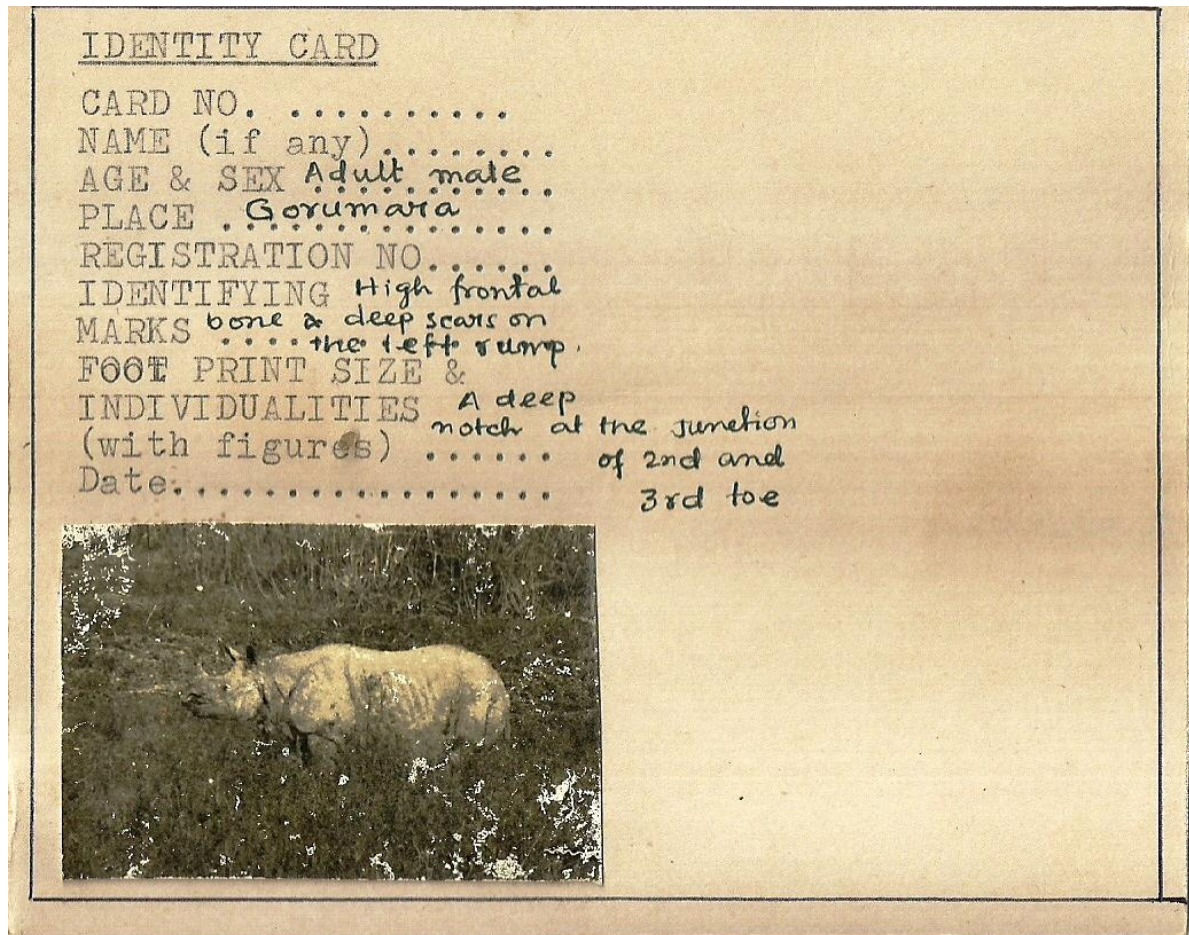 IDENTITY CARD
CARD NO. ..........
NAME (if any)........
AGE & SEX Adult male
PLACE . Gorumara
REGISTRATION NO......
IDENTIFYING High frontal
MARKS bone & deep scars on
.... the left rump.
FOOT PRINT SIZE &
INDIVIDUALITIES A deep
notch at the junction
(with figures) ...... of 2nd and
Date.................. 3rd toe